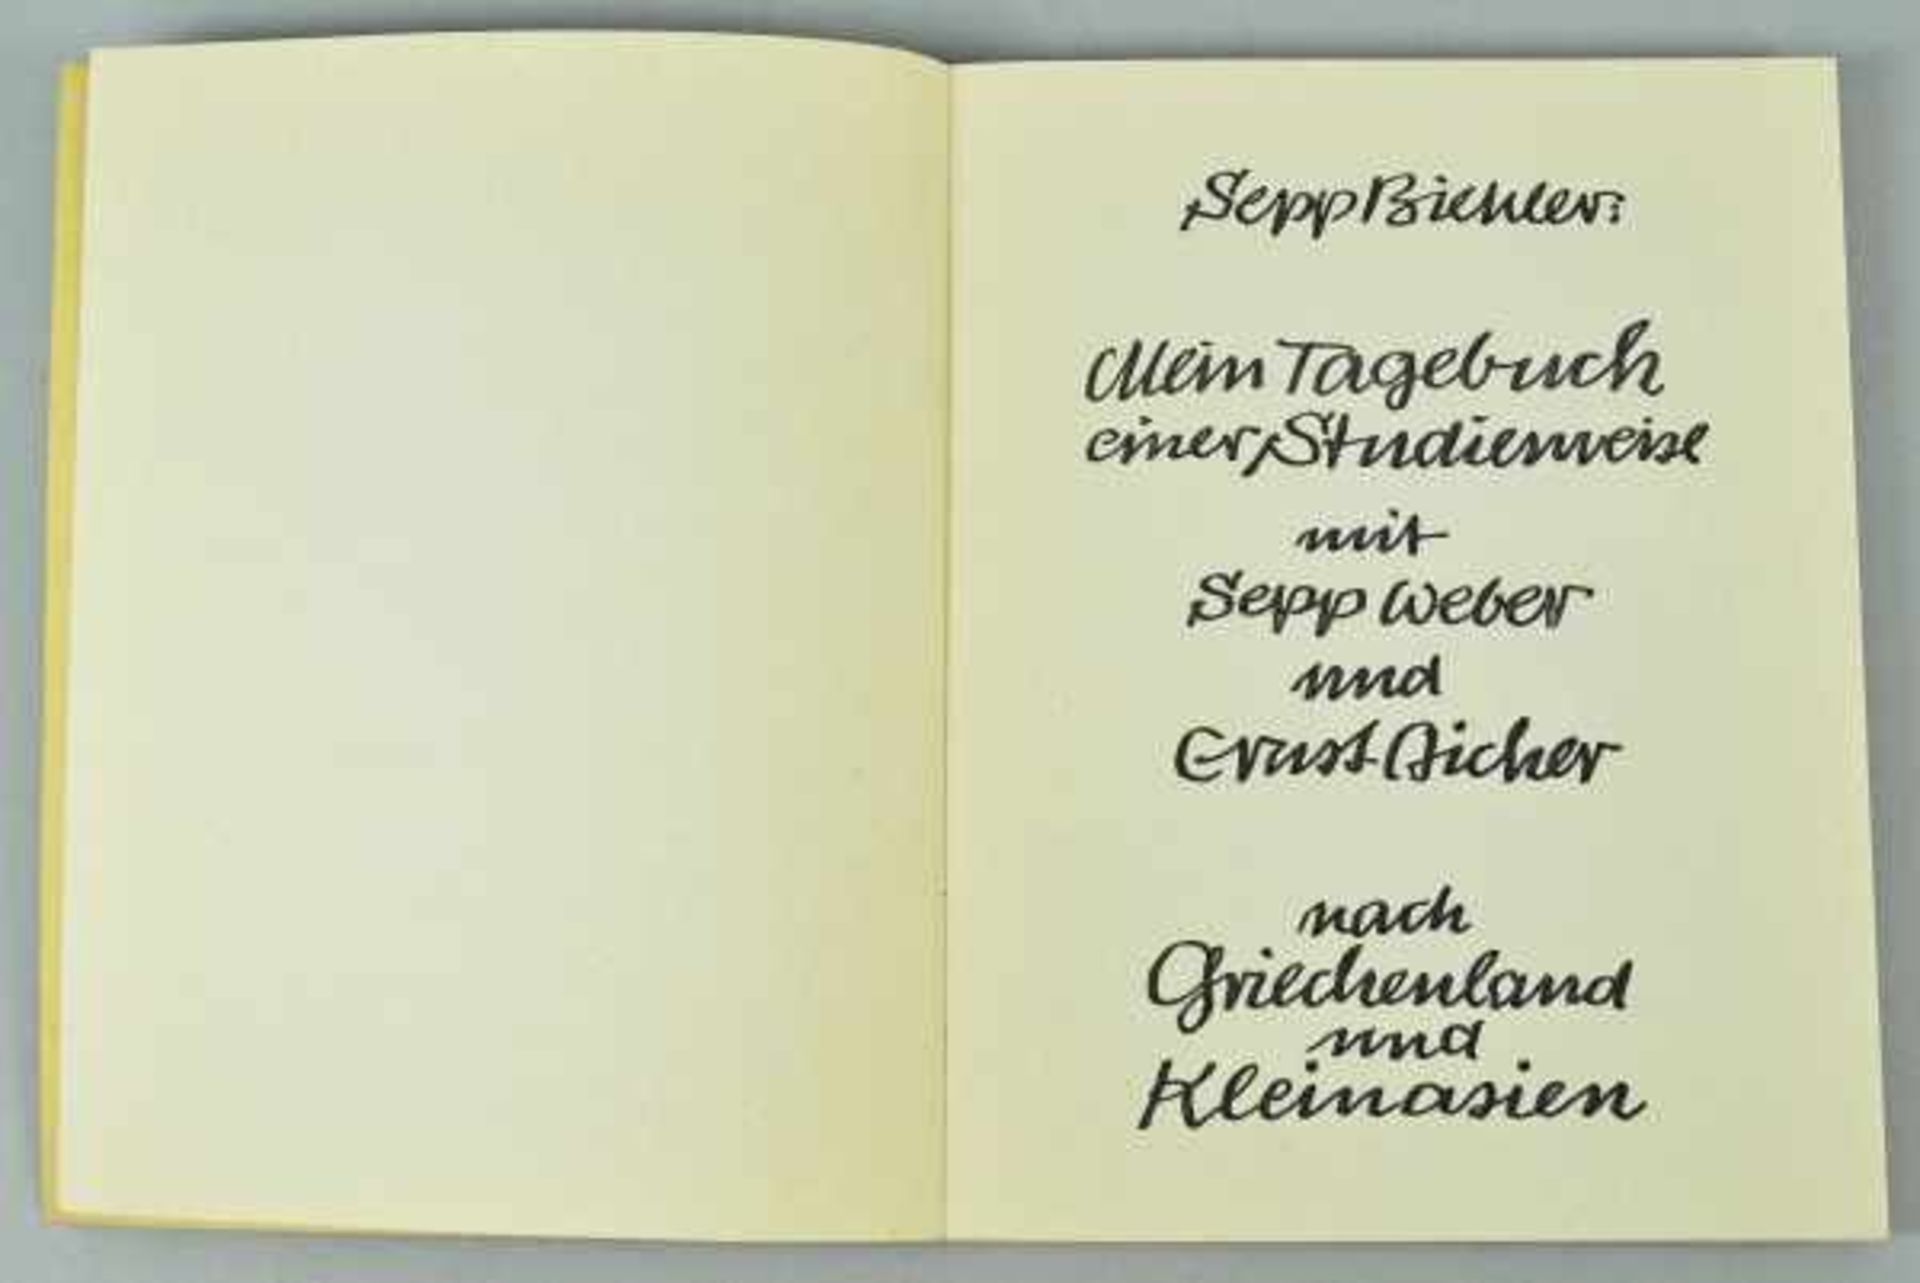 Sepp Biehler:
Mein Tagebuch
einer Studienreise
mit
Sepp Weber
und
Ernst Aicher
nach
Griechenland
und
Kleinasien